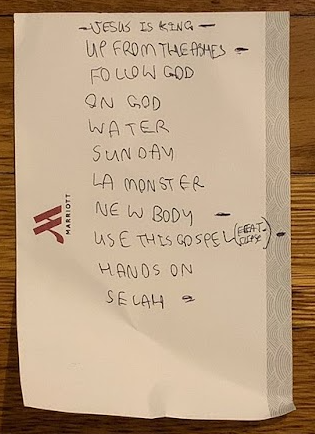 - JESUS IS KING -
UP FROM THE ASHES -
FOLLOW GOD
ON GOD
WATER
SUNDAY
LA MONSTER
NEW BODY -
USE THIS GOSPEL (FEAT. CLIPSE) -
HANDS ON
SELAH -
MARRIOTT